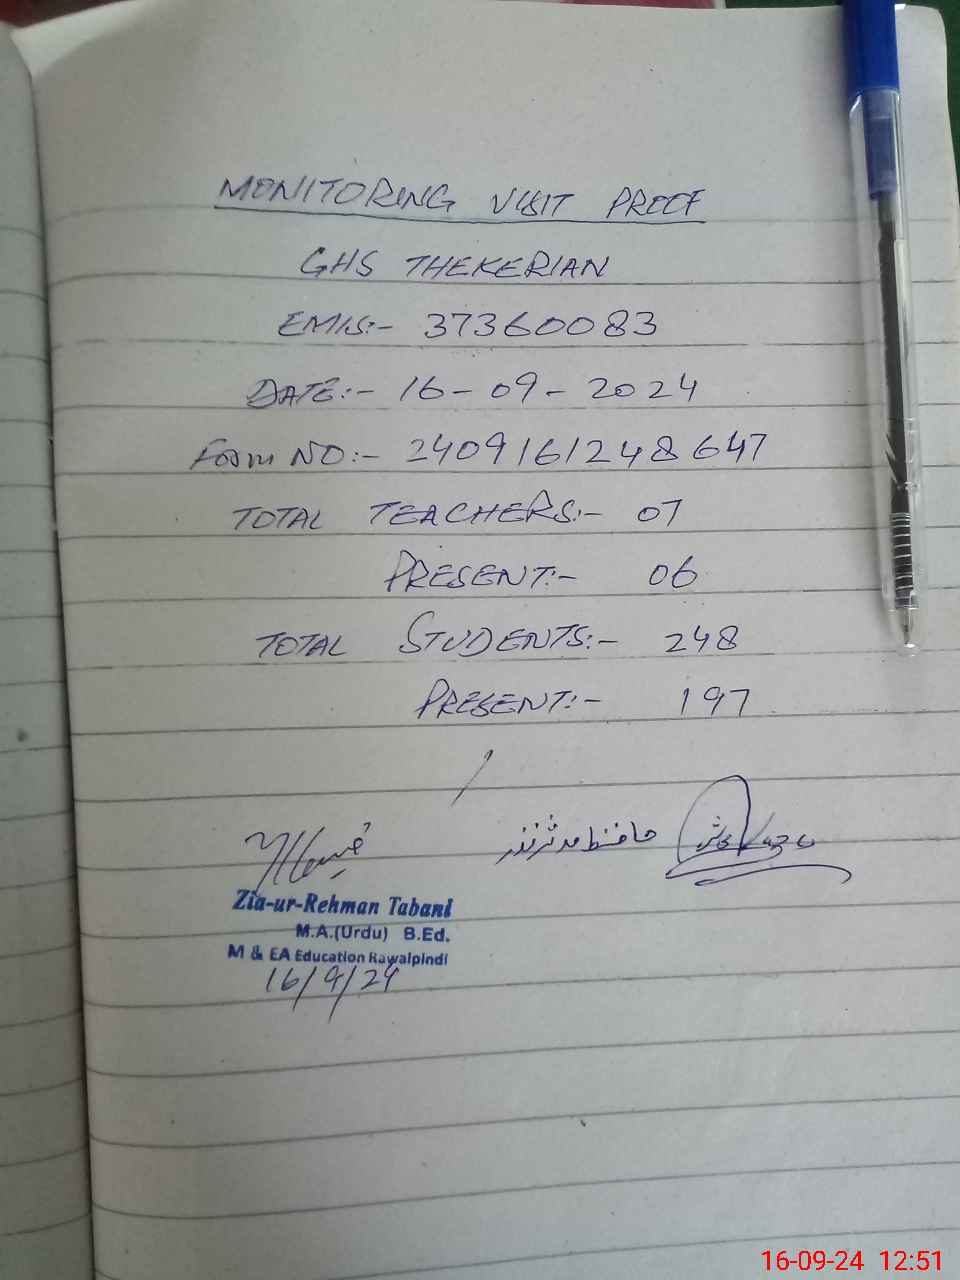 MONITORING VISIT PROOF
GHS THEKERIAN
EMIS:- 37360083
DATE:- 16-09-2024
Form NO:- 2409161248647
TOTAL TEACHERS:- 07
PRESENT:- 06
TOTAL STUDENTS:- 248
PRESENT:- 197
حافظ مدثر نذر
Zia-ur-Rehman Tabani
M.A.(Urdu) B.Ed.
M & EA Education Rawalpindi
16/9/24
16-09-24 12:51